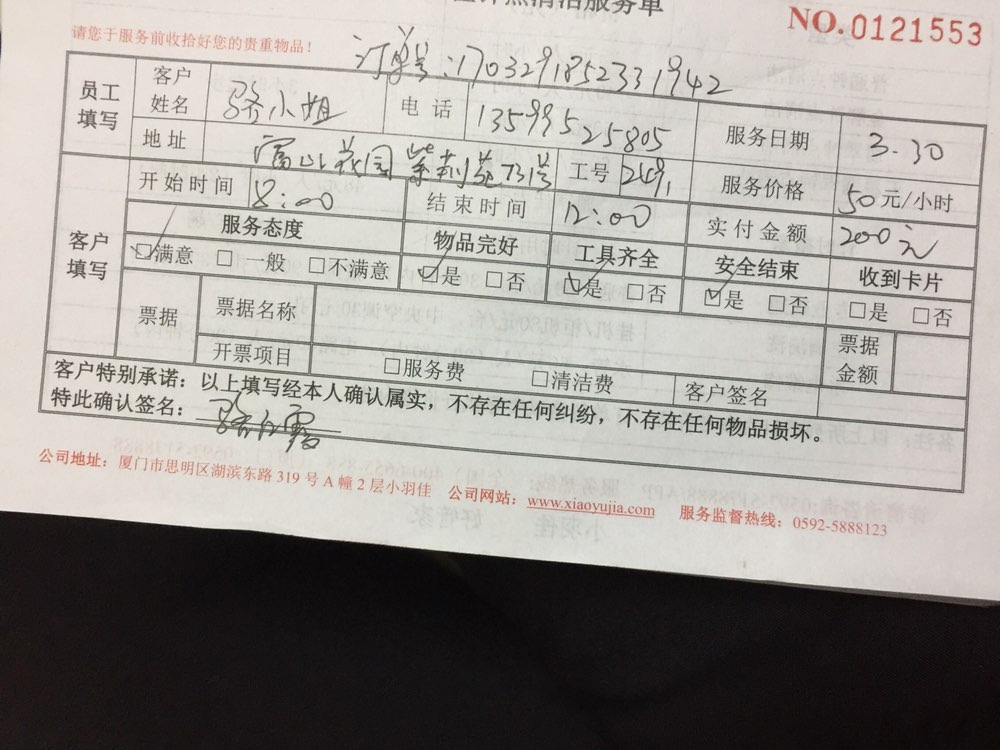 点清洁服务单
NO.0121553
请您于服务前收拾好您的贵重物品！
订单号：1703291852331942
员工填写 客户姓名 骆小姐 电话 13599525805 服务日期 3.30
地址 富山花园紫荆苑 工号 服务价格 50元/小时
开始时间 8:00 结束时间 12:00 实付金额 200元
客户填写 服务态度 物品完好 工具齐全 安全结束 收到卡片
☑满意 □一般 □不满意 ☑是 □否 ☑是 □否 ☑是 □否 □是 □否
票据 票据名称 票据金额
开票项目 □服务费 □清洁费 客户签名
客户特别承诺：以上填写经本人确认属实，不存在任何纠纷，不存在任何物品损坏。
特此确认签名：
公司地址：厦门市思明区湖滨东路319号A幢2层小羽佳 公司网站：www.xiaoyujia.com 服务监督热线：0592-5888123